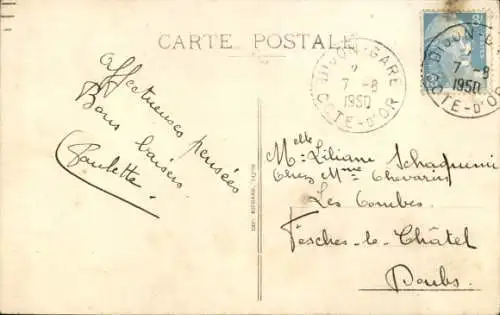 CARTE POSTALE
DIJON-GARE
7-8
1950
COTE-D'OR
DIJON-G
7-8
1950
COTE-D'OR
Affectueuses pensées
Bons baisers
Paulette.
Melle Liliane Schaquemi
Chez Mme Chevarin
Les Combes
Fesches-le-Châtel
Doubs.